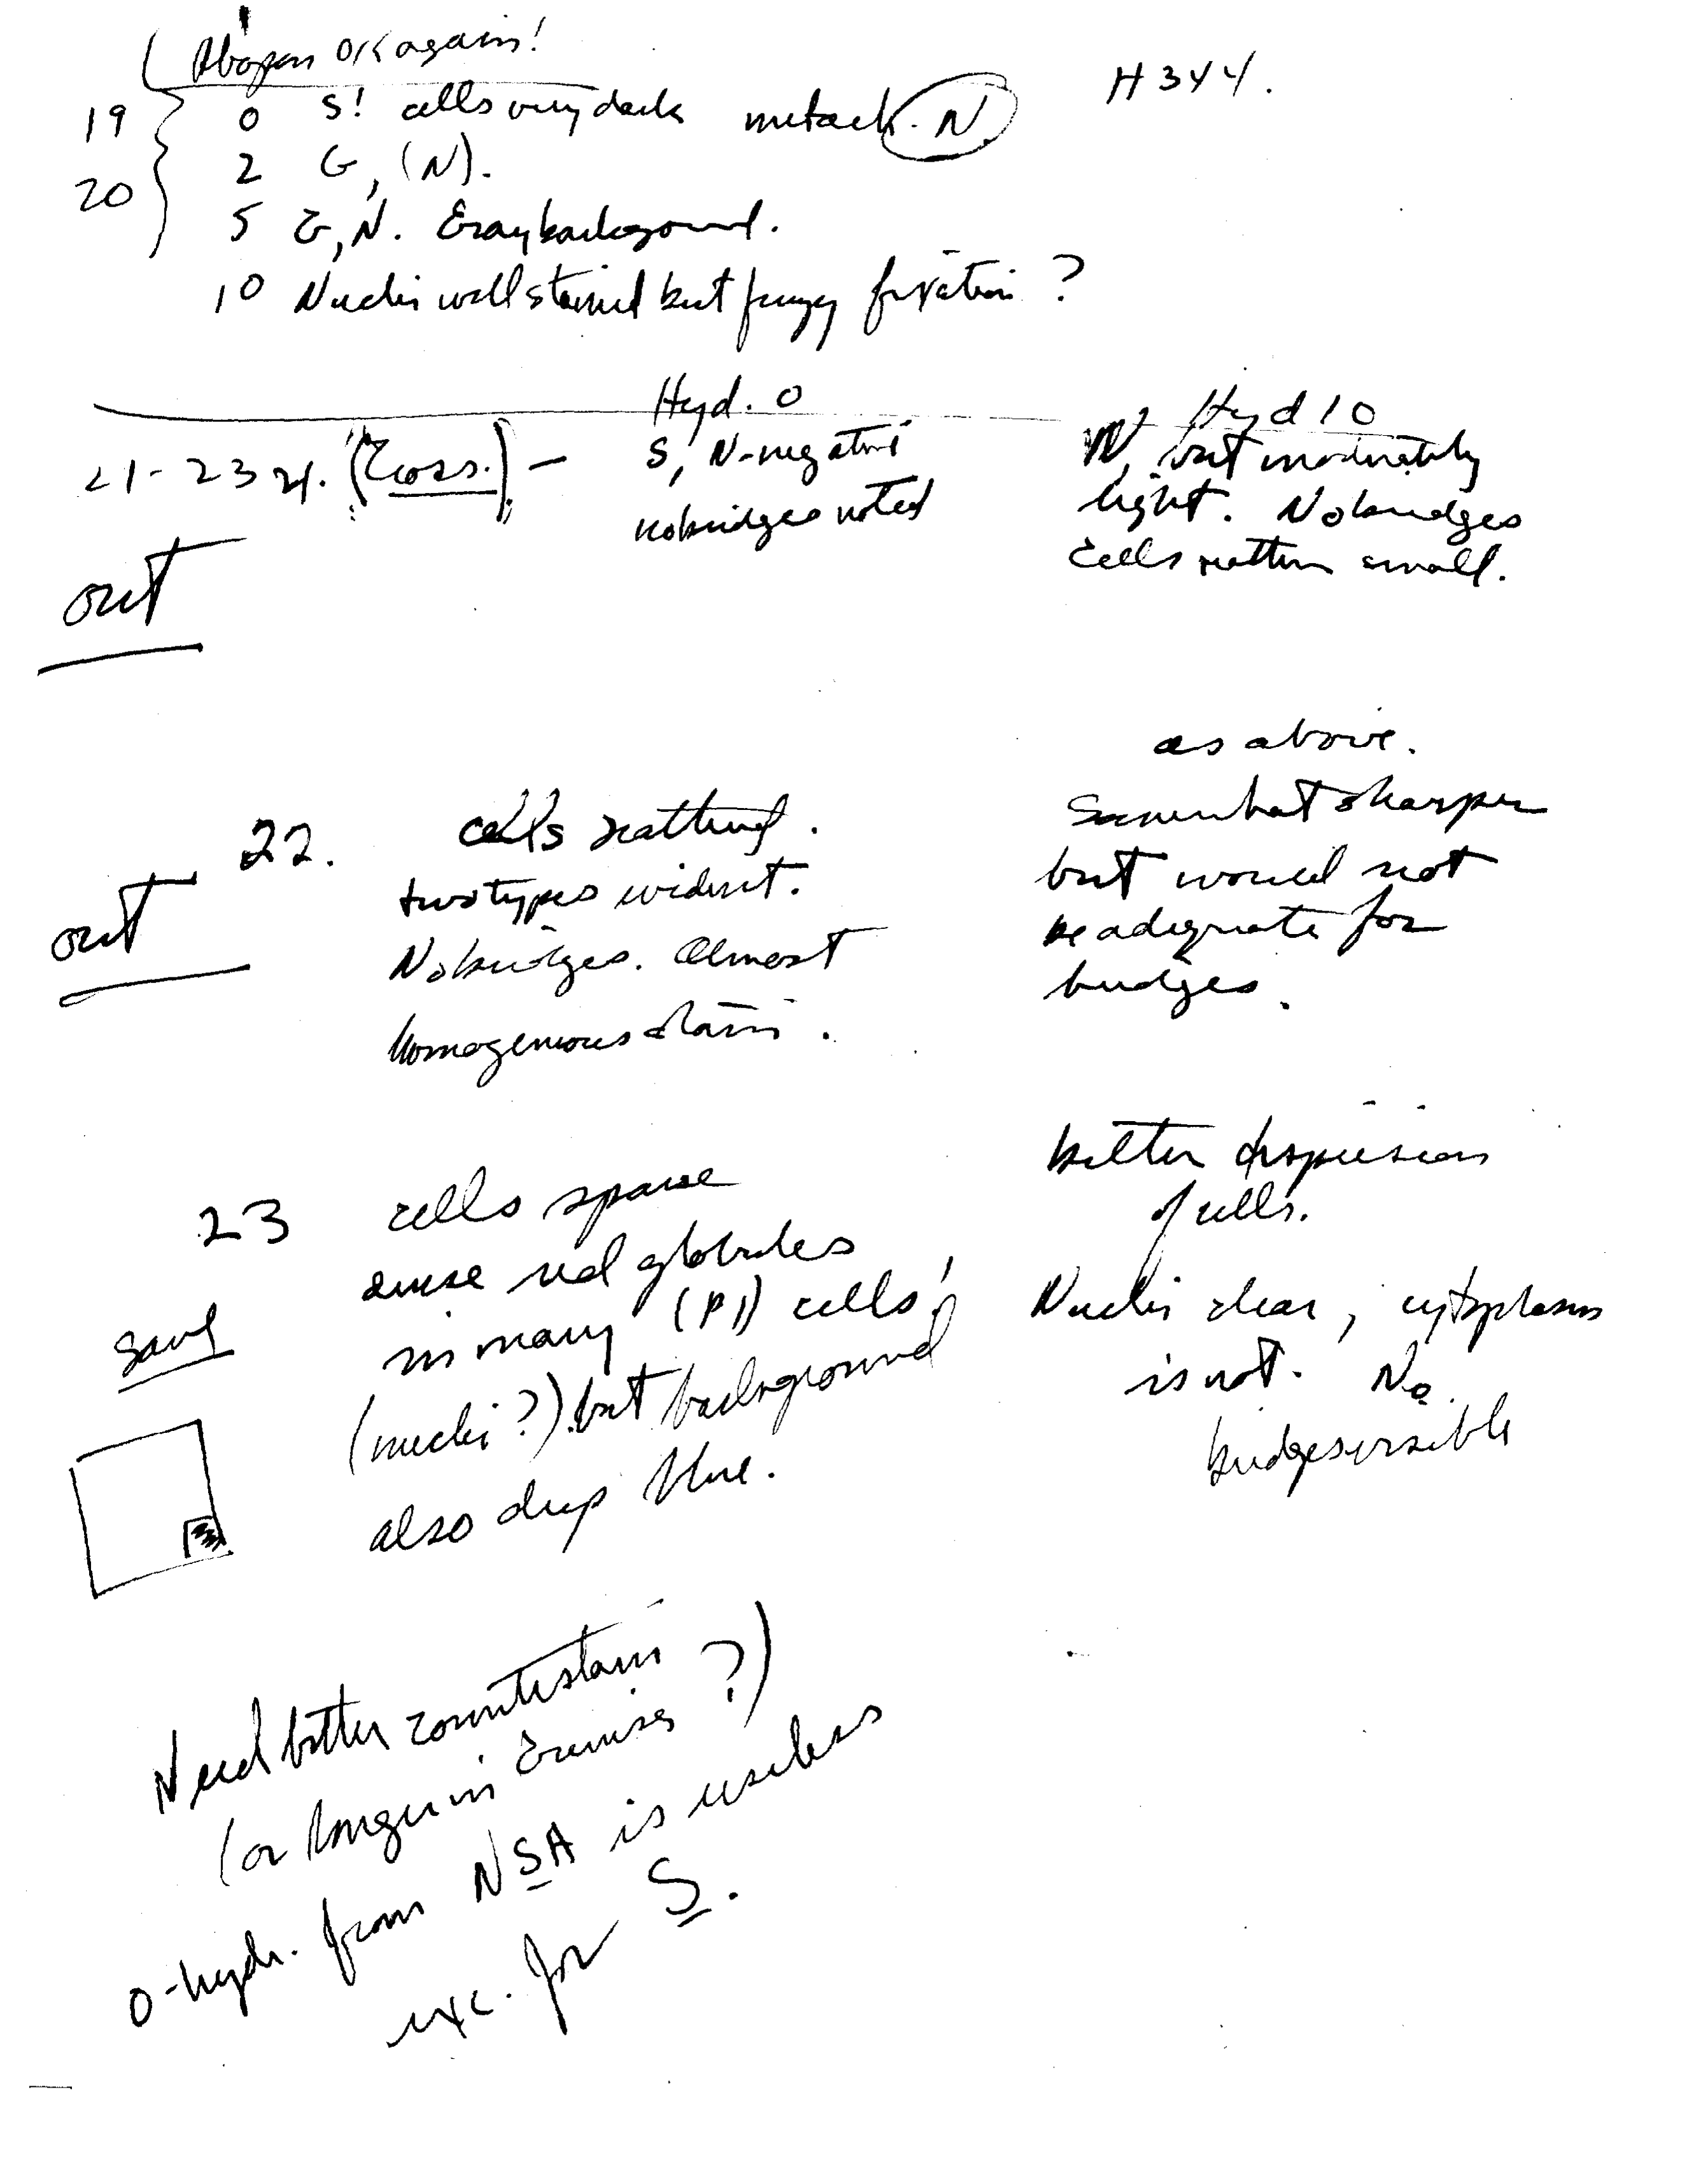 Abopon OK again!
H344.
19 0 S! cells very dark metach. N
2 G, (N).
20
5 G, N. Gray background.
10 Nuclei well stained but fuzzy fixation?
Hyd. 0
Hyd 10
21-23 (Cross.) —
S, N-negative
no bridges noted
N, but moderately
light. No bridges
Cells rather small.
out
22. cells scattered.
two types evident.
No bridges. Almost
homogeneous stain.
as above.
Somewhat sharper
but would not
be adequate for
bridges.
out
23 cells sparse
red globules
in many (P1) cells!
(nuclei?) but background
also deep blue.
better dispersion
of cells.
Nuclei clear, cytoplasm
is not. No
bridges visible
save
Need better counterstain
(or longer in ?)
0-hydr. from NSA is useless
exc. for S.